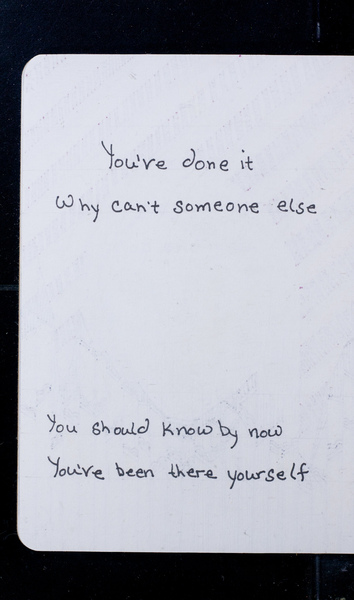 You've done it
Why can't someone else
You should know by now
You've been there yourself